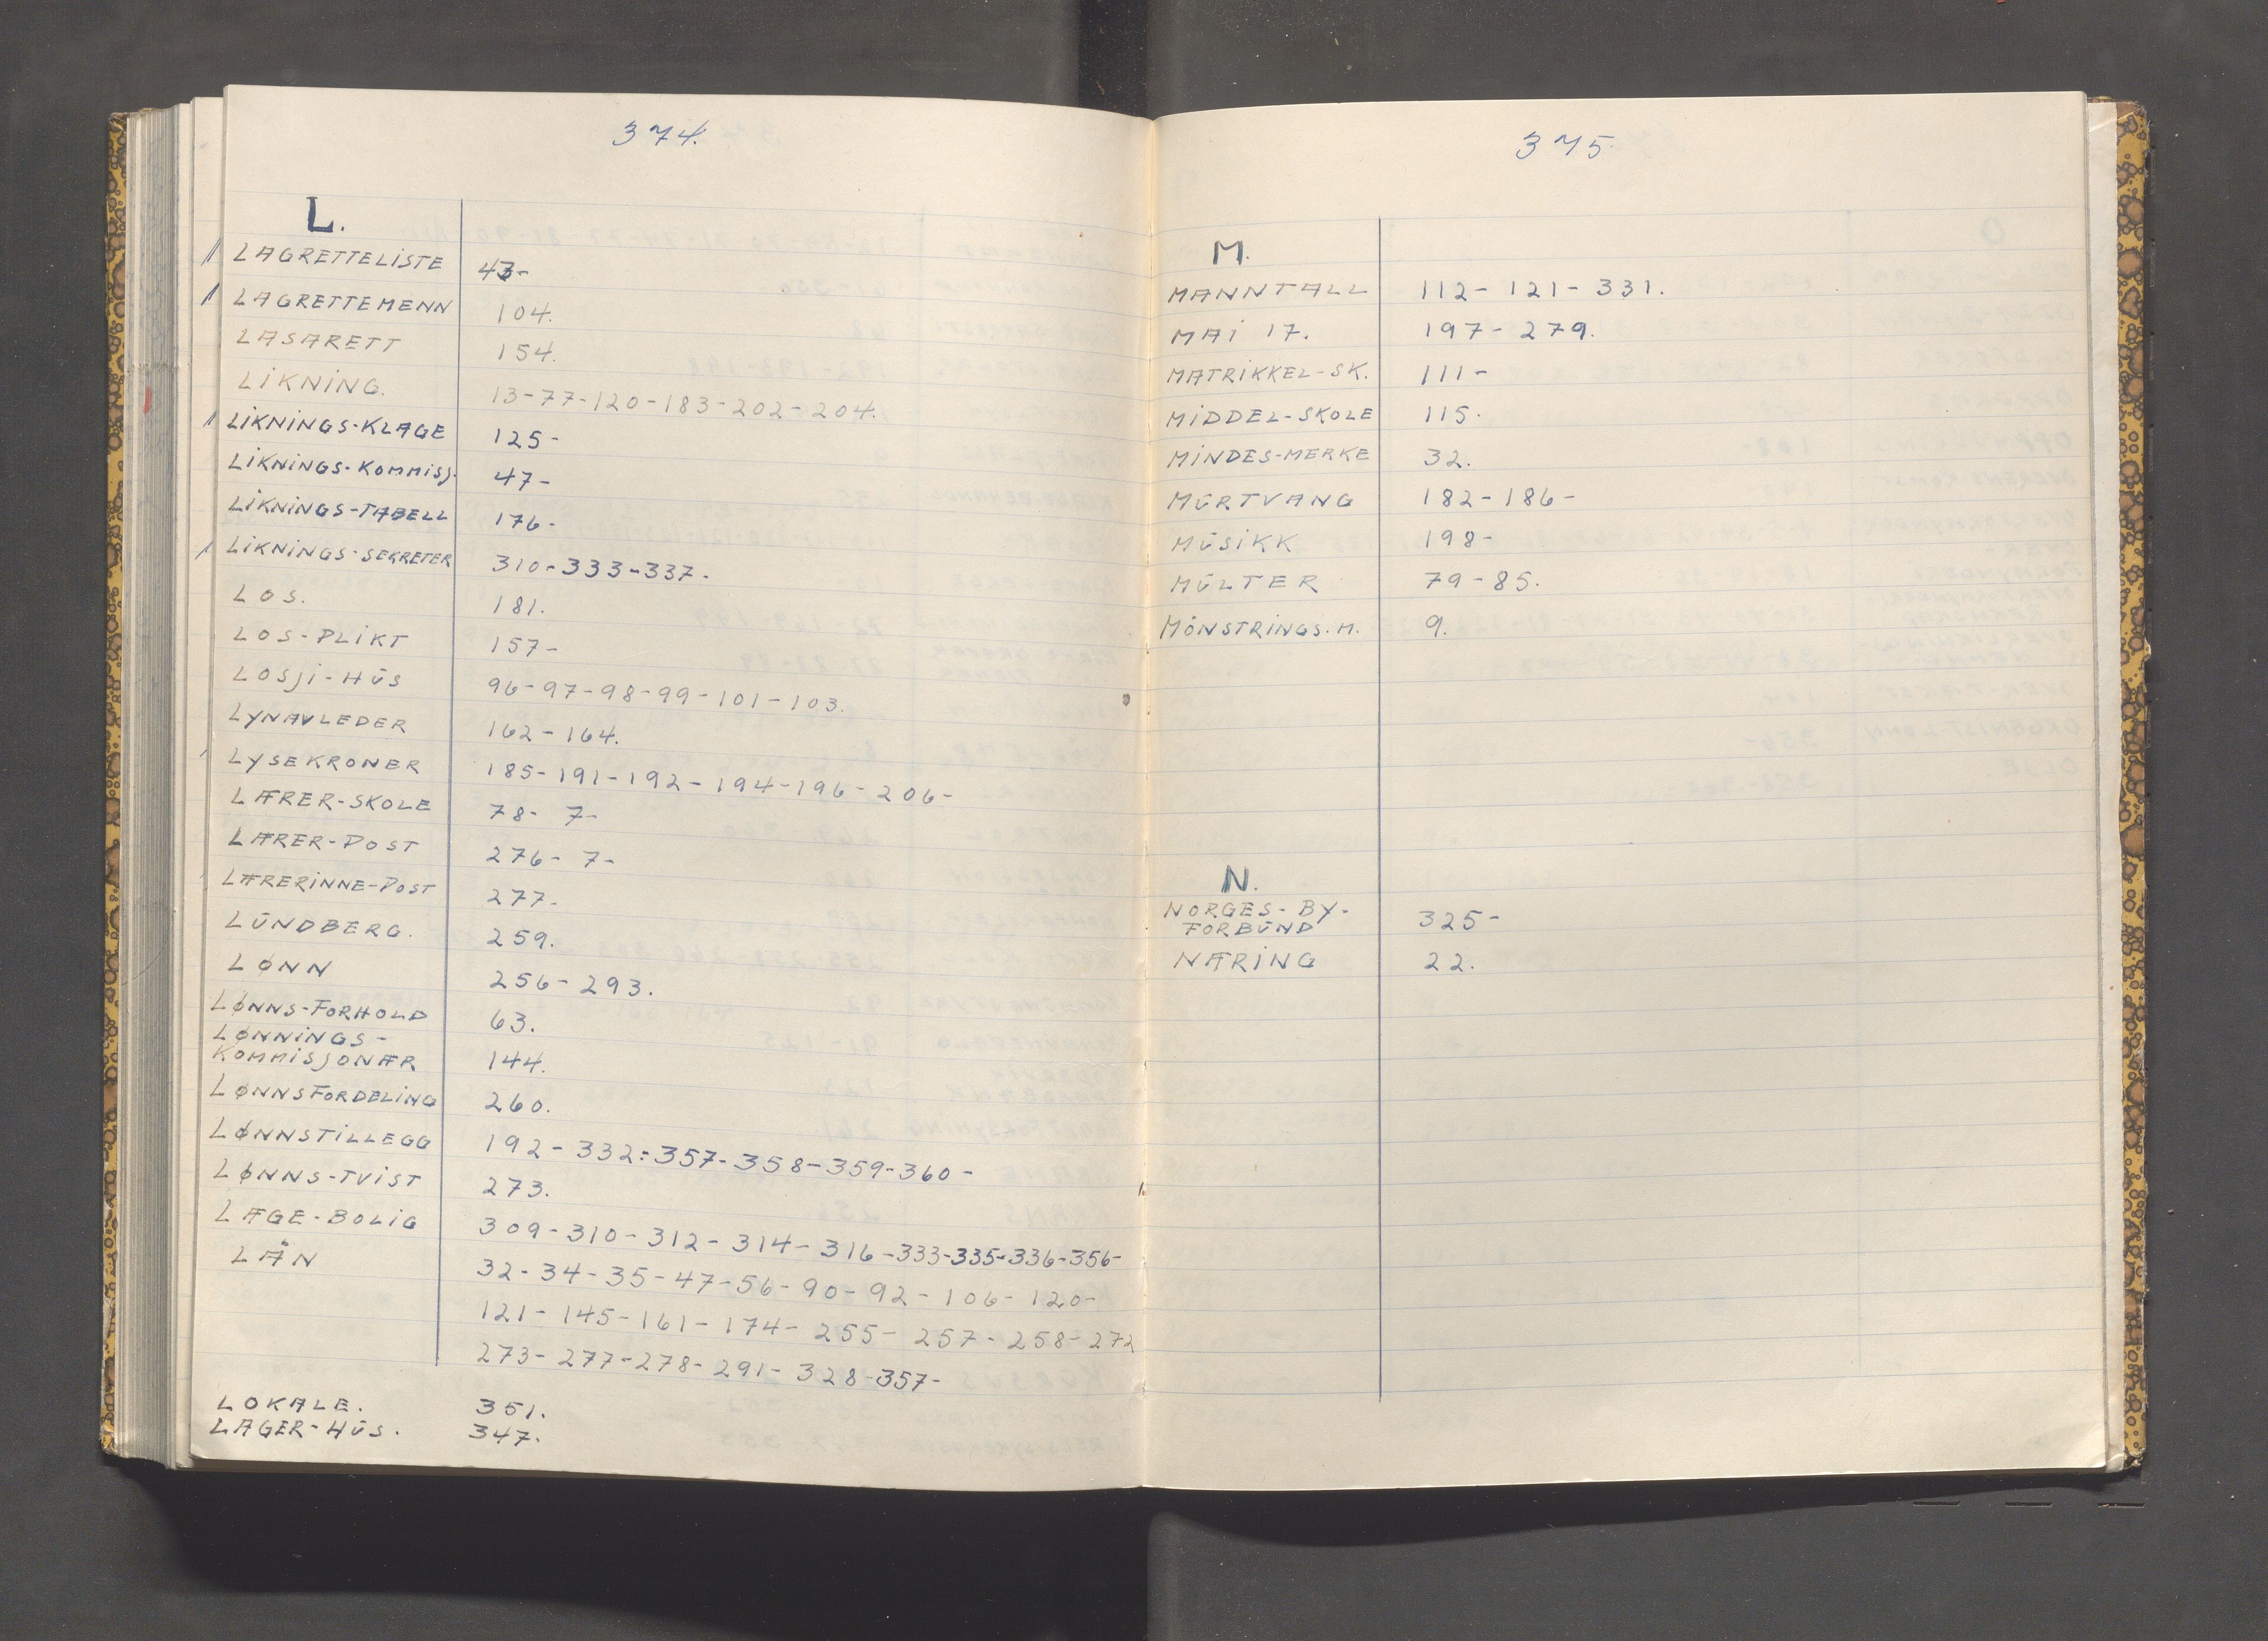 374.
L.
LAGRETTELISTE 43-
LAGRETTEMENN 104.
LASARETT 154.
LIKNING. 13-77-120-183-202-204.
LIKNINGS-KLAGE 125-
LIKNINGS-KOMMISJ. 47-
LIKNINGS-TABELL 176-
LIKNINGS-SEKRETER 310-333-337.
LOS. 181.
LOS-PLIKT 157-
LOSJI-HŪS 96-97-98-99-101-103.
LYNAVLEDER 162-164.
LYSEKRONER 185-191-192-194-196-206-
LÆRER-SKOLE 78- 7-
LÆRER-POST 276- 7-
LÆRERINNE-POST 277-
LŪNDBERG. 259.
LØNN 256-293.
LØNNS-FORHOLD 63.
LØNNINGS-
KOMMISJONÆR 144.
LØNNSFORDELING 260.
LØNNSTILLEGG 192-332-357-358-359-360-
LØNNS-TVIST 273.
LÆGE-BOLIG 309-310-312-314-316-333-335-336-356-
LÅN 32-34-35-47-56-90-92-106-120-
121-145-161-174-255-257-258-272
273-277-278-291-328-357-
LOKALE. 351.
LAGER-HŪS. 347.
375.
M.
MANNTALL 112-121-331.
MAI 17. 197-279.
MATRIKKEL-SK. 111-
MIDDEL-SKOLE 115.
MINDES-MERKE 32.
MŪRTVANG 182-186-
MŪSIKK 198-
MŪLTER 79-85.
MÖNSTRINGS.M. 9.
N.
NORGES-BY-
FORBŪND 325-
NÆRING 22.